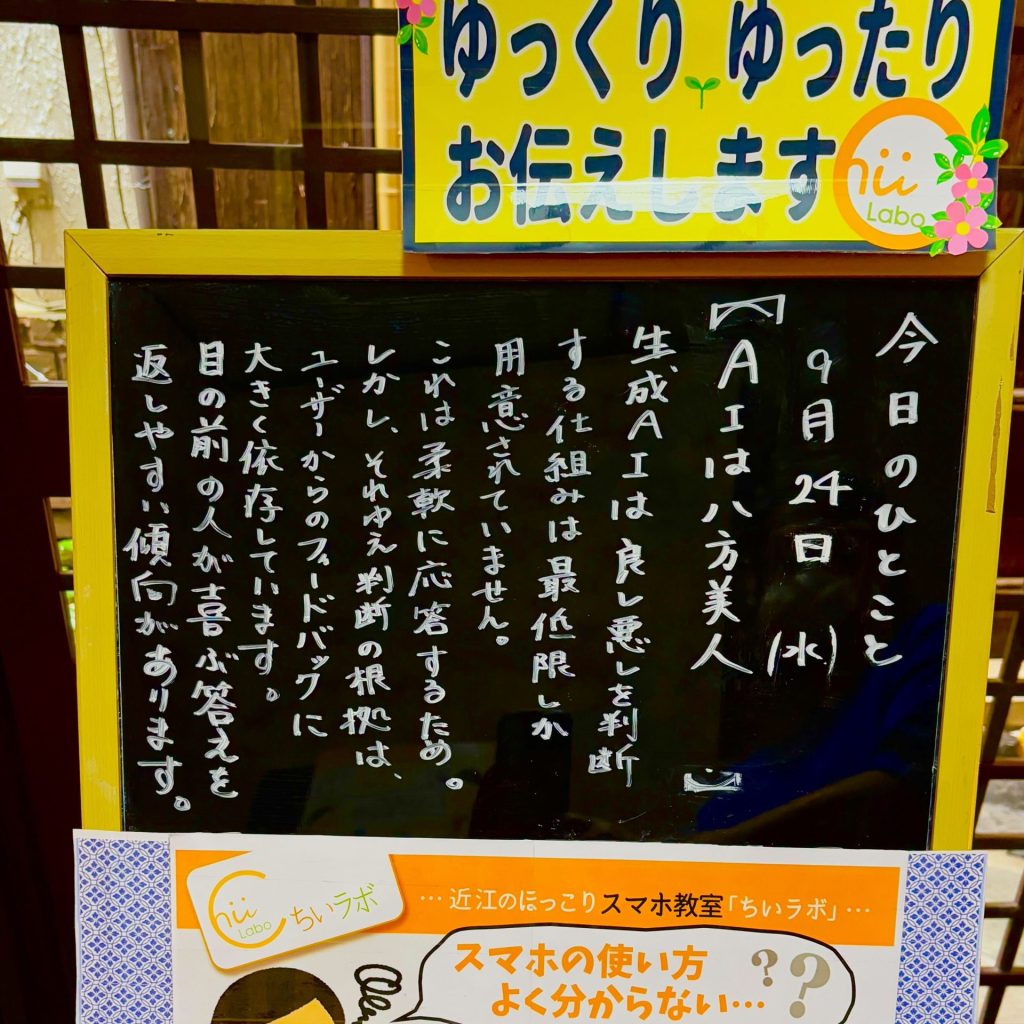 ゆっくり ゆったり
お伝えします
Chii
Labo
今日のひとこと
9月24日(水)
【AIは八方美人】
生成AIは良し悪しを判断
する仕組みは最低限しか
用意されていません。
これは柔軟に応答するため。
しかし、それゆえ判断の根拠は、
ユーザーからのフィードバックに
大きく依存しています。
目の前の人が喜ぶ答えを
返しやすい傾向があります。
Chii
Labo
ちいラボ
…近江のほっこりスマホ教室「ちいラボ」…
スマホの使い方
よく分からない…
??